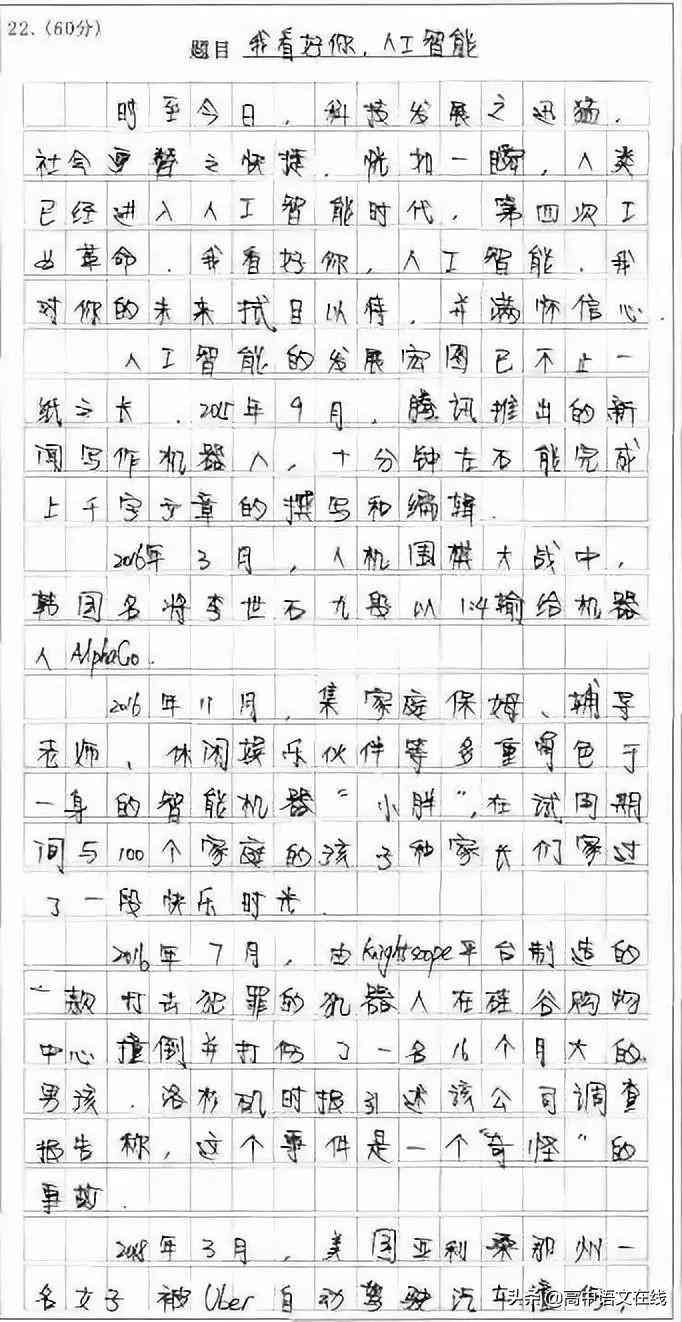 22.(60分)
题目 我看好你,人工智能
时至今日,科技发展之迅猛,
社会更替之快捷,恍如一瞬,人类
已经进入人工智能时代,第四次工
业革命.我看好你,人工智能.我
对你的未来拭目以待,并满怀信心.
人工智能的发展宏图已不止一
纸之长.2015年9月,腾讯推出的新
闻写作机器人,十分钟左右能完成
上千字文章的撰写和编辑.
2016年3月,人机围棋大战中,
韩国名将李世石九段以1:4输给机器
人AlphaGo.
2016年11月,集家庭保姆、辅导
老师、休闲娱乐伙伴等多重角色于
一身的智能机器“小胖”,在试用期
间与100个家庭的孩子和家长们家过
了一段快乐时光.
2016年7月,由Knightscope平台制造的
一款打击犯罪的机器人在硅谷购物
中心撞倒并打伤了一名16个月大的
男孩.洛杉矶时报引述该公司调查
报告称,这个事件是一个“奇怪”的
事故.
2018年3月,美国亚利桑那州一
名女子被Uber自动驾驶汽车撞伤,
头条@高中语文在线